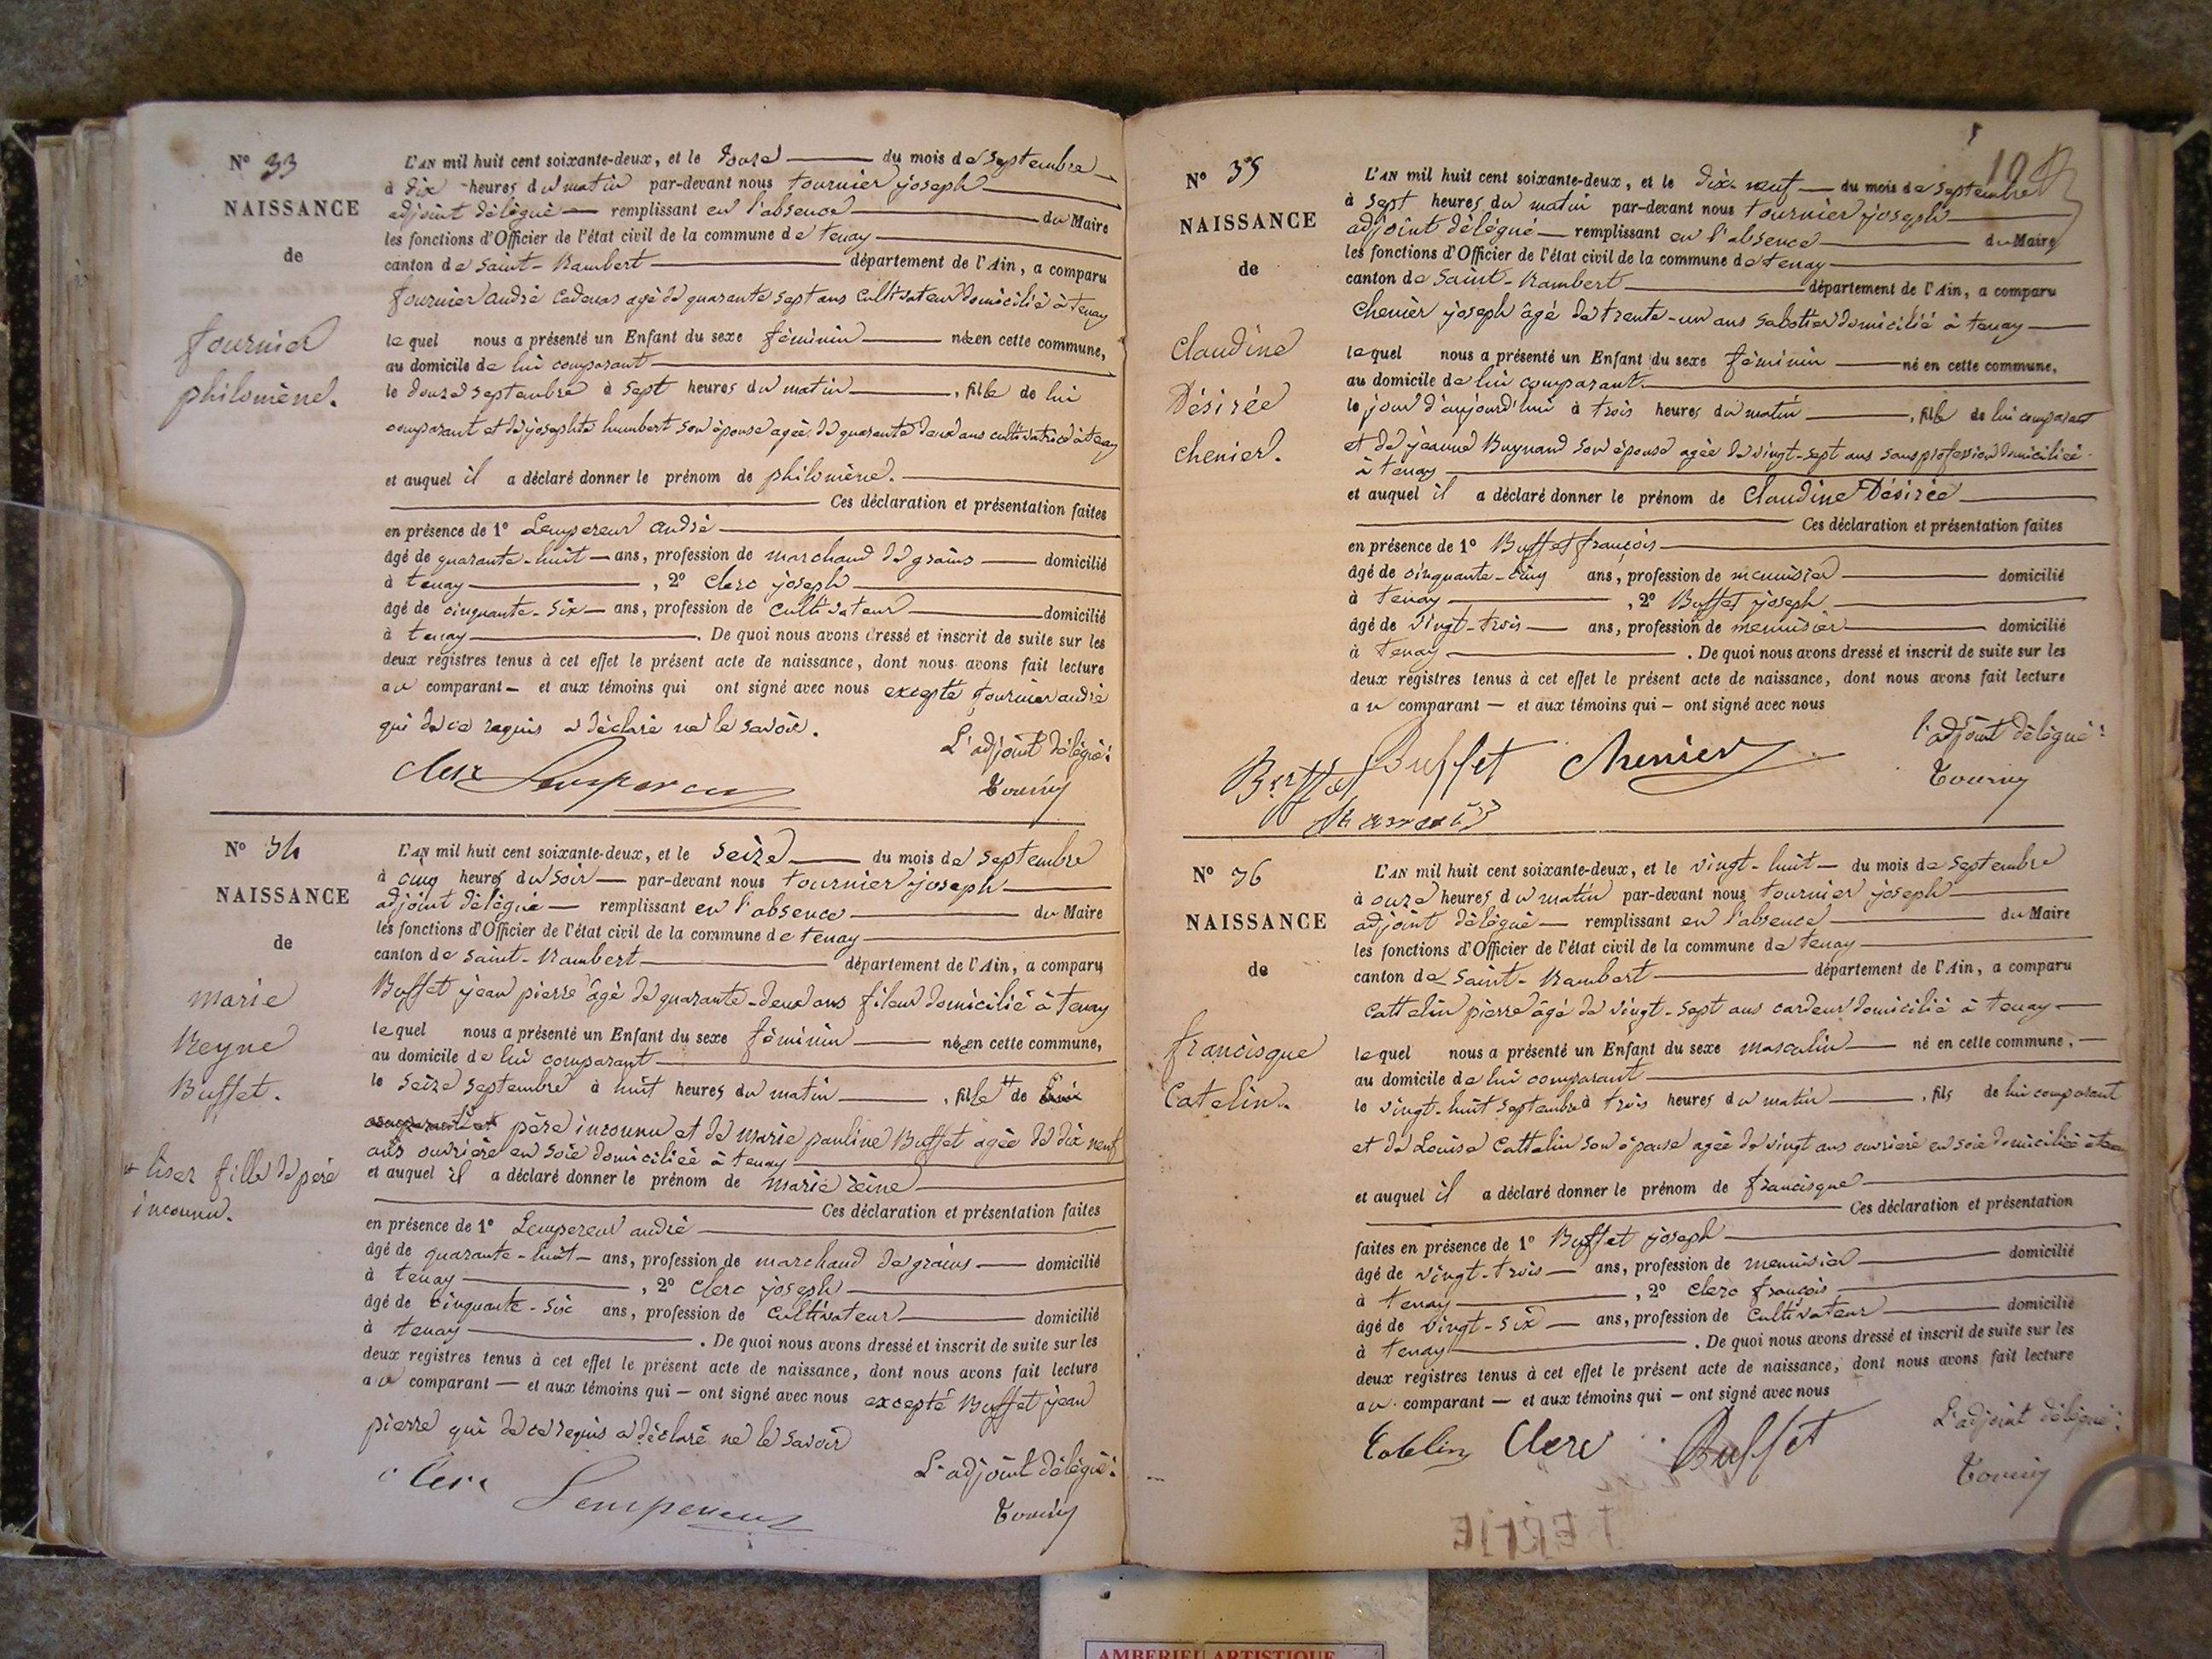 N° 33
NAISSANCE
de
fournier
philomène.
L'AN mil huit cent soixante-deux, et le douze du mois de septembre
à dix heures du matin par-devant nous tournier joseph
adjoint délégué remplissant en l'absence du Maire
les fonctions d'Officier de l'état civil de la commune de tenay
canton de saint-Rambert département de l'Ain, a comparu
fournier andré cadenas agé de quarante sept ans cultivateur domicilié à tenay
lequel nous a présenté un Enfant du sexe féminin née en cette commune,
au domicile de lui comparant
le douze septembre à sept heures du matin, fille de lui
comparant et de josephte humbert son épouse agée de quarante deux ans cultivatrice à tenay
et auquel il a déclaré donner le prénom de philomène.
Ces déclaration et présentation faites
en présence de 1° Lempereur andré
âgé de quarante-huit ans, profession de marchand de grains domicilié
à tenay, 2° clerc joseph
âgé de cinquante-six ans, profession de cultivateur domicilié
à tenay. De quoi nous avons dressé et inscrit de suite sur les
deux registres tenus à cet effet le présent acte de naissance, dont nous avons fait lecture
au comparant - et aux témoins qui ont signé avec nous excepté fournier andré
qui de ce requis a déclaré ne le savoir.
L'adjoint délégué:
Clerc Lempereur
N° 34
NAISSANCE
de
marie
Reyne
Buffet.
+ lisez fille de père
inconnu.
L'AN mil huit cent soixante-deux, et le seize du mois de septembre
à cinq heures du soir par-devant nous tournier joseph
adjoint délégué remplissant en l'absence du Maire
les fonctions d'Officier de l'état civil de la commune de tenay
canton de saint-Rambert département de l'Ain, a comparu
Buffet jean pierre âgé de quarante-deux ans fileur domicilié à tenay
lequel nous a présenté un Enfant du sexe féminin née en cette commune,
au domicile de lui comparant
le seize septembre à huit heures du matin, fille + de lui
comparant et père inconnu et de marie pauline Buffet agée de dix neuf
ans ouvrière en soie domiciliée à tenay
et auquel il a déclaré donner le prénom de marie reine
Ces déclaration et présentation faites
en présence de 1° Lempereur andré
âgé de quarante-huit ans, profession de marchand de grains domicilié
à tenay, 2° clerc joseph
âgé de cinquante-six ans, profession de cultivateur domicilié
à tenay. De quoi nous avons dressé et inscrit de suite sur les
deux registres tenus à cet effet le présent acte de naissance, dont nous avons fait lecture
au comparant — et aux témoins qui — ont signé avec nous excepté Buffet jean
pierre qui de ce requis a déclaré ne le savoir
L'adjoint délégué:
Clerc Lempereur
10
N° 35
NAISSANCE
de
Claudine
Désirée
chenier.
L'AN mil huit cent soixante-deux, et le dix-neuf du mois de septembre
à sept heures du matin par-devant nous tournier joseph
adjoint délégué remplissant en l'absence du Maire
les fonctions d'Officier de l'état civil de la commune de tenay
canton de saint-Rambert département de l'Ain, a comparu
chenier joseph âgé de trente-un ans sabotier domicilié à tenay
lequel nous a présenté un Enfant du sexe féminin né en cette commune,
au domicile de lui comparant.
le jour d'aujourd'hui à trois heures du matin, fille de lui comparant
et de jeanne Buynand son épouse agée de vingt-sept ans sans profession domiciliée
à tenay
et auquel il a déclaré donner le prénom de Claudine Désirée
Ces déclaration et présentation faites
en présence de 1° Buffet françois
âgé de cinquante-cinq ans, profession de menuisier domicilié
à tenay, 2° Buffet joseph
âgé de vingt-trois ans, profession de menuisier domicilié
à tenay. De quoi nous avons dressé et inscrit de suite sur les
deux registres tenus à cet effet le présent acte de naissance, dont nous avons fait lecture
au comparant — et aux témoins qui — ont signé avec nous
l'adjoint délégué:
Buffet Buffet Chenier
N° 36
NAISSANCE
de
francisque
Catelin.
L'AN mil huit cent soixante-deux, et le vingt-huit du mois de septembre
à onze heures du matin par-devant nous tournier joseph
adjoint délégué remplissant en l'absence du Maire
les fonctions d'Officier de l'état civil de la commune de tenay
canton de saint-Rambert département de l'Ain, a comparu
cattelin pierre âgé de vingt-sept ans cardeur domicilié à tenay
lequel nous a présenté un Enfant du sexe masculin né en cette commune,
au domicile de lui comparant
le vingt-huit septembre à trois heures du matin, fils de lui comparant
et de Louise Cattelin son épouse agée de vingt ans ouvrière en soie domiciliée à tenay
et auquel il a déclaré donner le prénom de francisque
Ces déclaration et présentation
faites en présence de 1° Buffet joseph
âgé de vingt-trois ans, profession de menuisier domicilié
à tenay, 2° clerc françois
âgé de vingt-six ans, profession de cultivateur domicilié
à tenay. De quoi nous avons dressé et inscrit de suite sur les
deux registres tenus à cet effet le présent acte de naissance, dont nous avons fait lecture
au comparant — et aux témoins qui — ont signé avec nous
L'adjoint délégué:
Clerc Buffet
AMBERIEU ARTISTIQUE